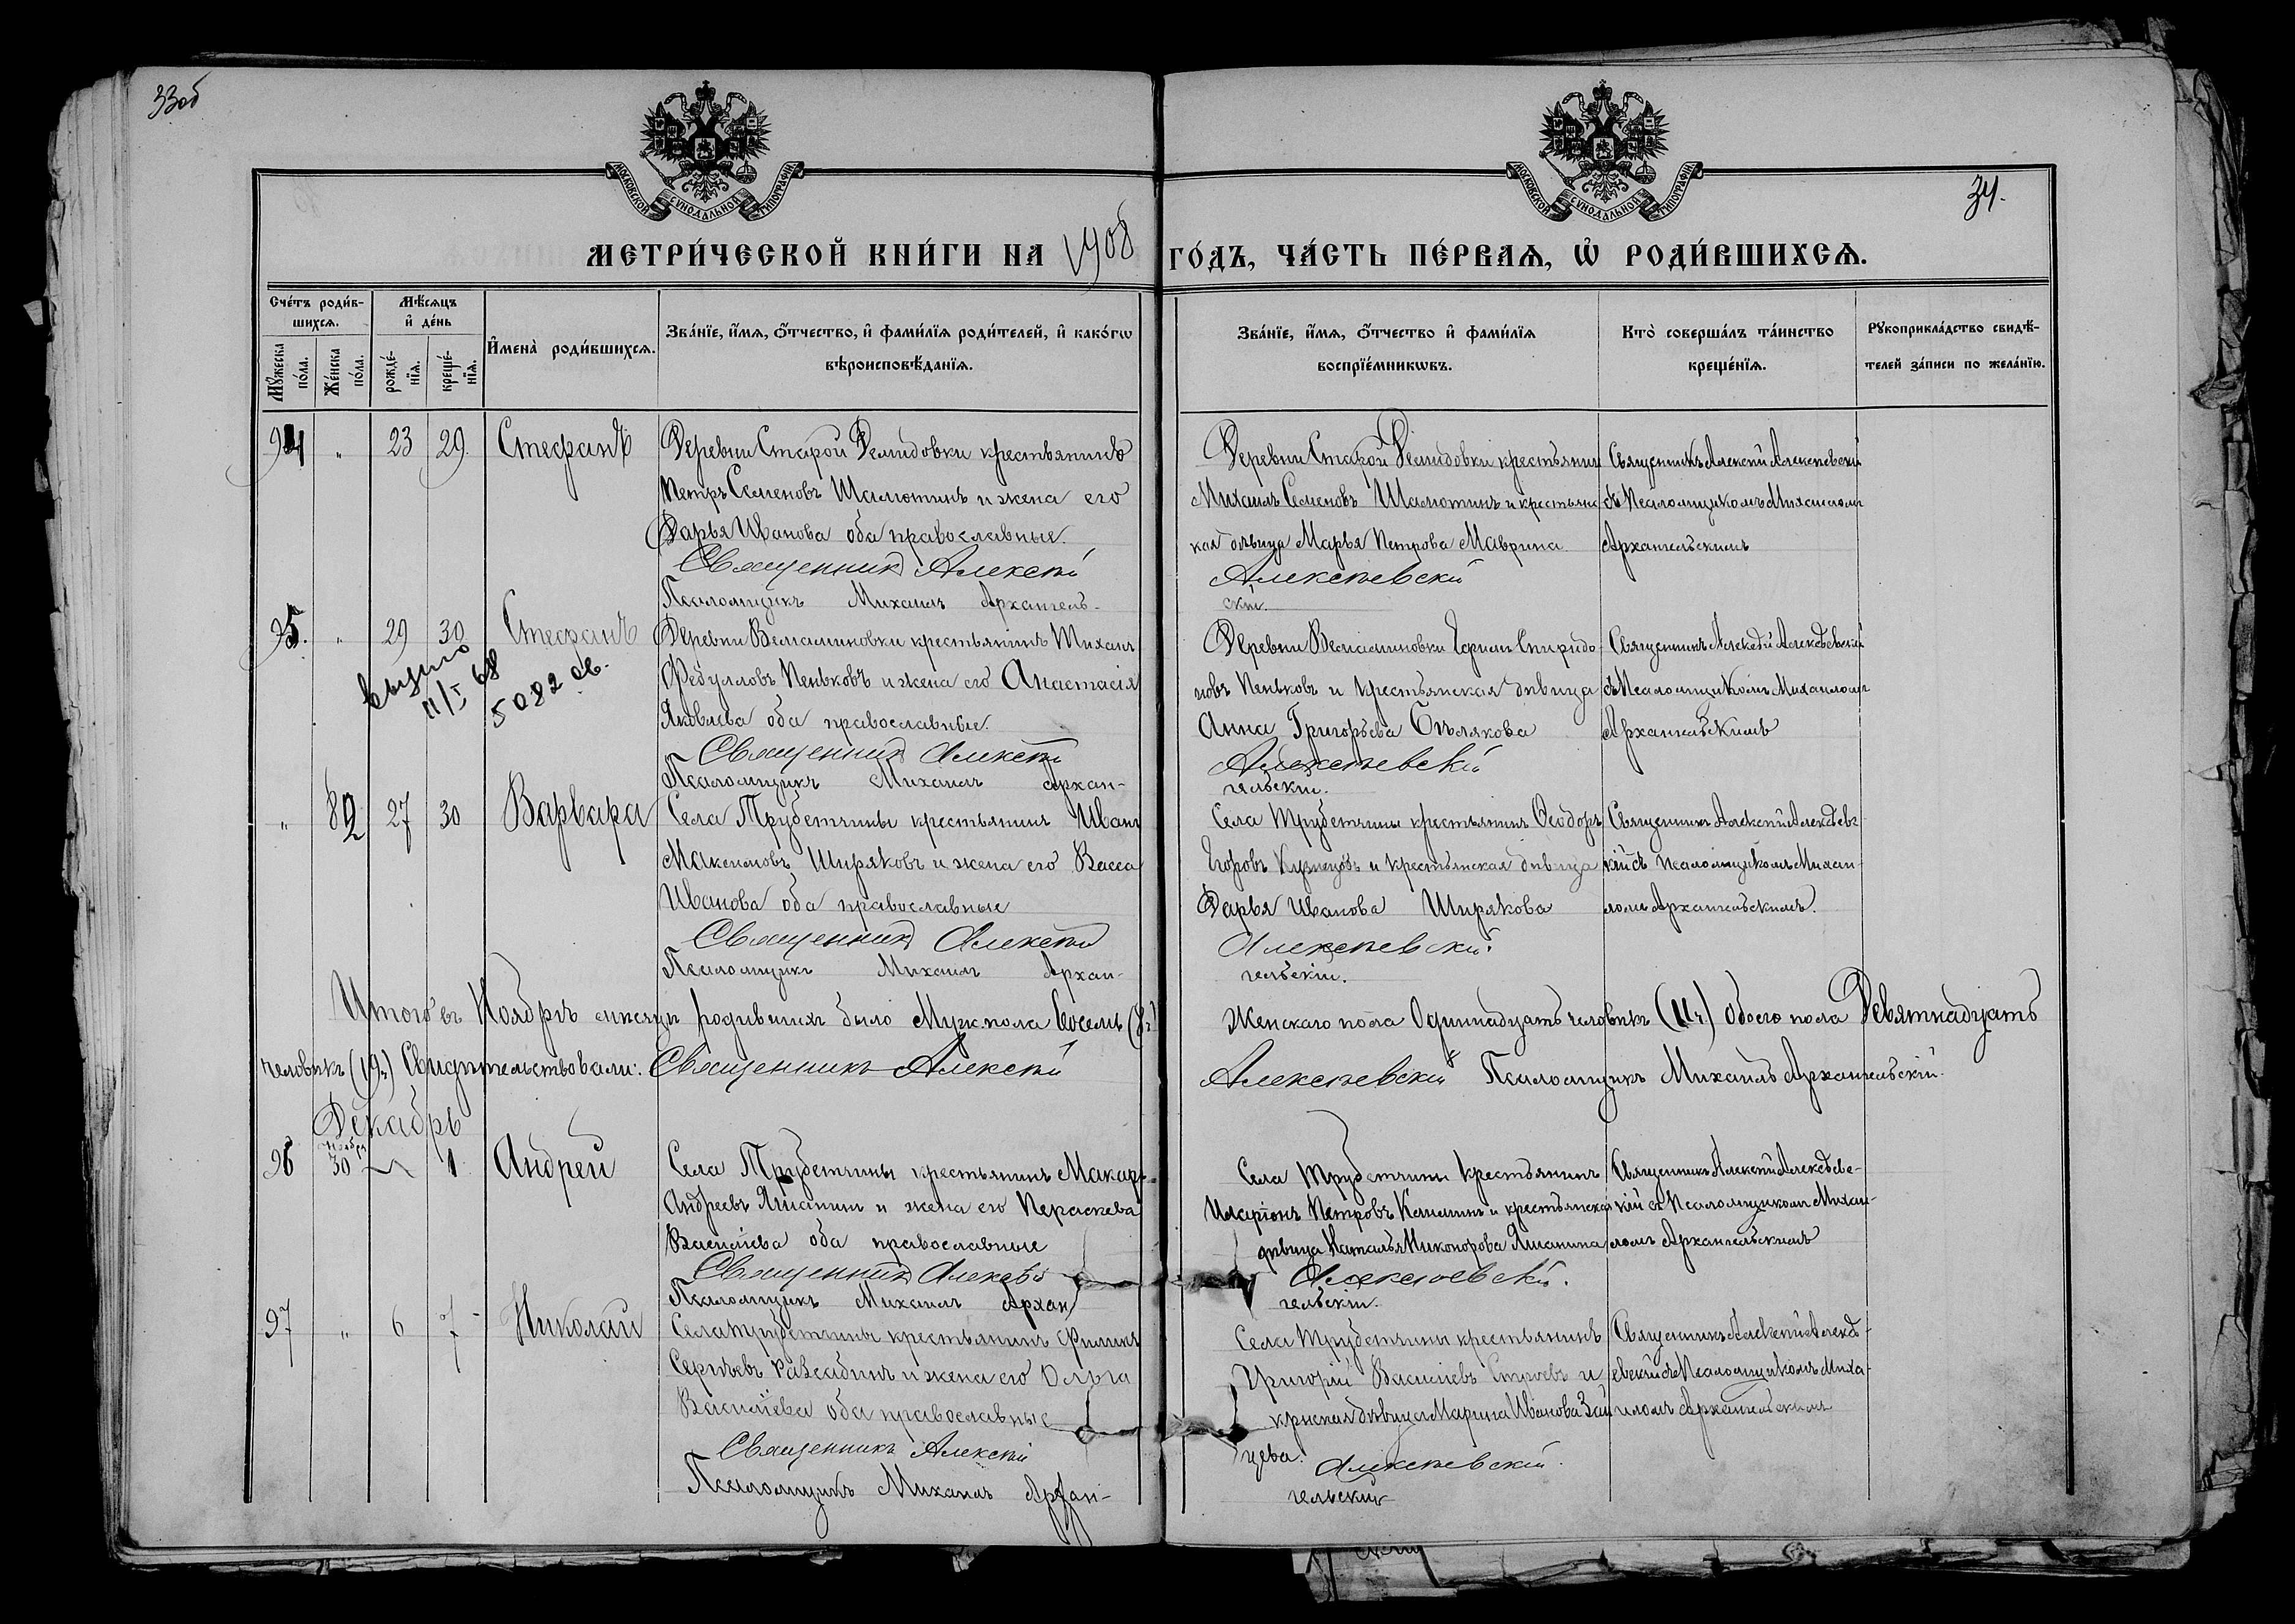 33об
МОСКОВСКОЙ СѴНОДАЛЬНОЙ ТИПОГРАФІИ
МОСКОВСКОЙ СѴНОДАЛЬНОЙ ТИПОГРАФІИ
34.
МЕТРИ́ЧЕСКОЙ КНИ́ГИ НА 1908 ГО́ДЪ, ЧА́СТЬ ПЕ́РВАѦ, Ѡ҆ РОДИ́ВШИХСѦ.
Сче́тъ роди́в-
шихсѧ.
Мꙋ́жеска по́ла.
Же́нска по́ла.
Мѣ́сѧцъ
и҆ де́нь
рожде́-нїѧ.
креще́-нїѧ.
И҆мена̀ роди́вшихсѧ.
Зва́нїе, и҆́мѧ, ѻ҆́тчество, и҆ фами́лїѧ роди́телей, и҆ како́гѡ
вѣроисповѣ́данїѧ.
Зва́нїе, и҆́мѧ, ѻ҆́тчество и҆ фами́лїѧ
воспрїе́мникѡвъ.
Кто̀ соверша́лъ та́инство
креще́нїѧ.
Рꙋкоприкла́дство свидѣ́-
телей за́писи по жела́нїю.
94 " 23 29 Стефанъ
Деревни Старой Демидовки крестьянинъ
Петръ Семеновъ Шалютинъ и жена его
Дарья Иванова оба православные.
Священникъ Алексѣй
Псаломщикъ Михаилъ Архангель-
Деревни Старой Демидовки крестьянин
Михаилъ Семеновъ Шалютинъ и крестьянс
кая дѣвица Марья Петрова Маврина.
Алексѣевскій
скій.
Священникъ Алексѣй Алексѣевскій
съ Псаломщикомъ Михаиломъ
Архангельскимъ
95. " 29 30 Стефанъ
11/I 68
5082 св.
Деревни Вельяминовки крестьянинъ Михаилъ
Федуловъ Пеньковъ и жена его Анастасія
Яковлева оба православные.
Священникъ Алексѣй
Псаломщикъ Михаилъ Архан-
Деревни Вельяминовки Спиридо-
новъ Пеньковъ и крестьянская дѣвица
Анна Григорьева Бѣлякова
Алексѣевскій
гельскій.
Священникъ Алексѣй Алексѣевскій
съ Псаломщикомъ Михаиломъ
Архангельскимъ
" 82 27 30 Варвара
Села Трубетчины крестьянинъ Иванъ
Максимовъ Ширяковъ и жена его Васса
Иванова оба православные
Священникъ Алексѣй
Псаломщикъ Михаилъ Архан-
Села Трубетчины крестьянинъ Ѳеодоръ
Егоровъ Кузнецовъ и крестьянская дѣвица
Дарья Иванова Ширякова
Алексѣевскій.
гельскій.
Священникъ Алексѣй Алексѣевс
кій съ Псаломщикомъ Михаи-
ломъ Архангельскимъ.
Итого въ Ноябрѣ мѣсяцѣ родившихъ было Муж. пола Восемь (8ч) Женскаго пола Одиннадцать человѣкъ (11ч.) Обоего пола Девятнадцать
человѣкъ (19ч.) Свидѣтельствовали: Священникъ Алексѣй Алексѣевскій Псаломщикъ Михаилъ Архангельскій.
Декабрь
96 Ноября 30 1 Андрей
Села Трубетчины крестьянинъ Макаръ
Андреевъ Ямашинъ и жена его Параскева
Васильева оба православные
Священникъ Алексѣй
Псаломщикъ Михаилъ Архан
Села Трубетчины крестьянинъ
Иларіонъ Петровъ и крестьянская
дѣвица Наталья Никонорова
Алексѣевскій.
гельскій.
Священникъ Алексѣй Алексѣевс-
кій съ Псаломщикомъ Михаи-
ломъ Архангельскимъ
97 " 6 7 Николай
Села Трубетчины крестьянинъ Филипъ
Сергѣевъ Разсадинъ и жена его Ольга
Васильева оба православные
Священникъ Алексѣй
Псаломщикъ Михаилъ Архан-
Села Трубетчины крестьянинъ
Григорій Васильевъ и
крнская дѣвица Марина Иванова Зай
цева.
Алексѣевскій.
гельскій
Священникъ Алексѣй Алексѣ-
евскій съ Псаломщикомъ Миха-
иломъ Архангельскимъ